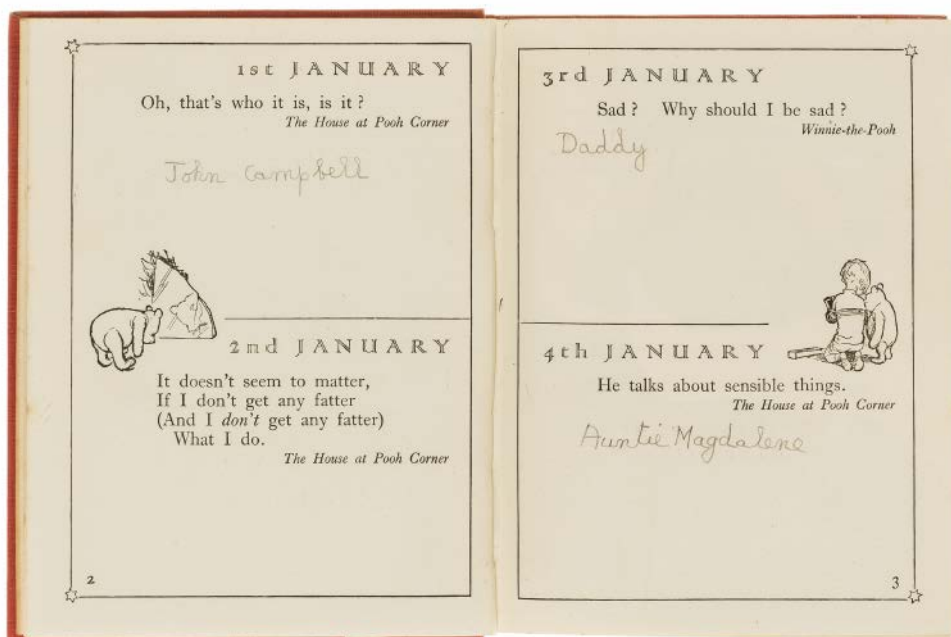 1st JANUARY
Oh, that's who it is, is it ?
The House at Pooh Corner
John Campbell
2nd JANUARY
It doesn't seem to matter,
If I don't get any fatter
(And I don't get any fatter)
What I do.
The House at Pooh Corner
2
3rd JANUARY
Sad ? Why should I be sad ?
Winnie-the-Pooh
Daddy
4th JANUARY
He talks about sensible things.
The House at Pooh Corner
Auntie Magdalene
3